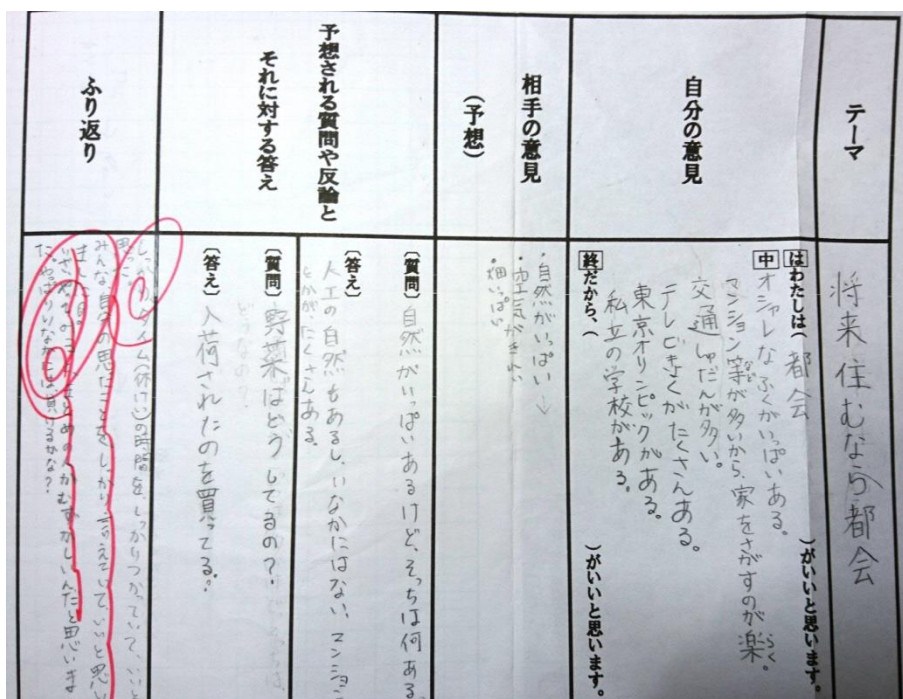 テーマ
将来住むなら都会
自分の意見
はわたしは(都会)がいいと思います。
中オシャレなふくがいっぱいある。
マンション等が多いから、家をさがすのが楽。
など
らく
交通しゅだんが多い。
テレビきょくがたくさんある。
東京オリンピックがある。
私立の学校がある。
終だから、(
)がいいと思います。
相手の意見
(予想)
・自然がいっぱい↓
・空気がきれい
・畑いっぱい
予想される質問や反論と
それに対する答え
〔質問〕自然がいっぱいあるけど、そっちは何ある
〔答え〕人工の自然もあるし、いなかにはない、マンション
とかが、たくさんある。
〔質問〕野菜はどうしてるの?
〔答え〕入荷されたのを買ってる。
ふり返り
タイム(休けい)の時間を、しっかりつかっていて、いいと
思った。
みんな自分の思たことをしっかり言えていて、いいと思い
ました。
まとめの人がむずかしいんだと思いま
た。やっぱりいなかには負けるかな?